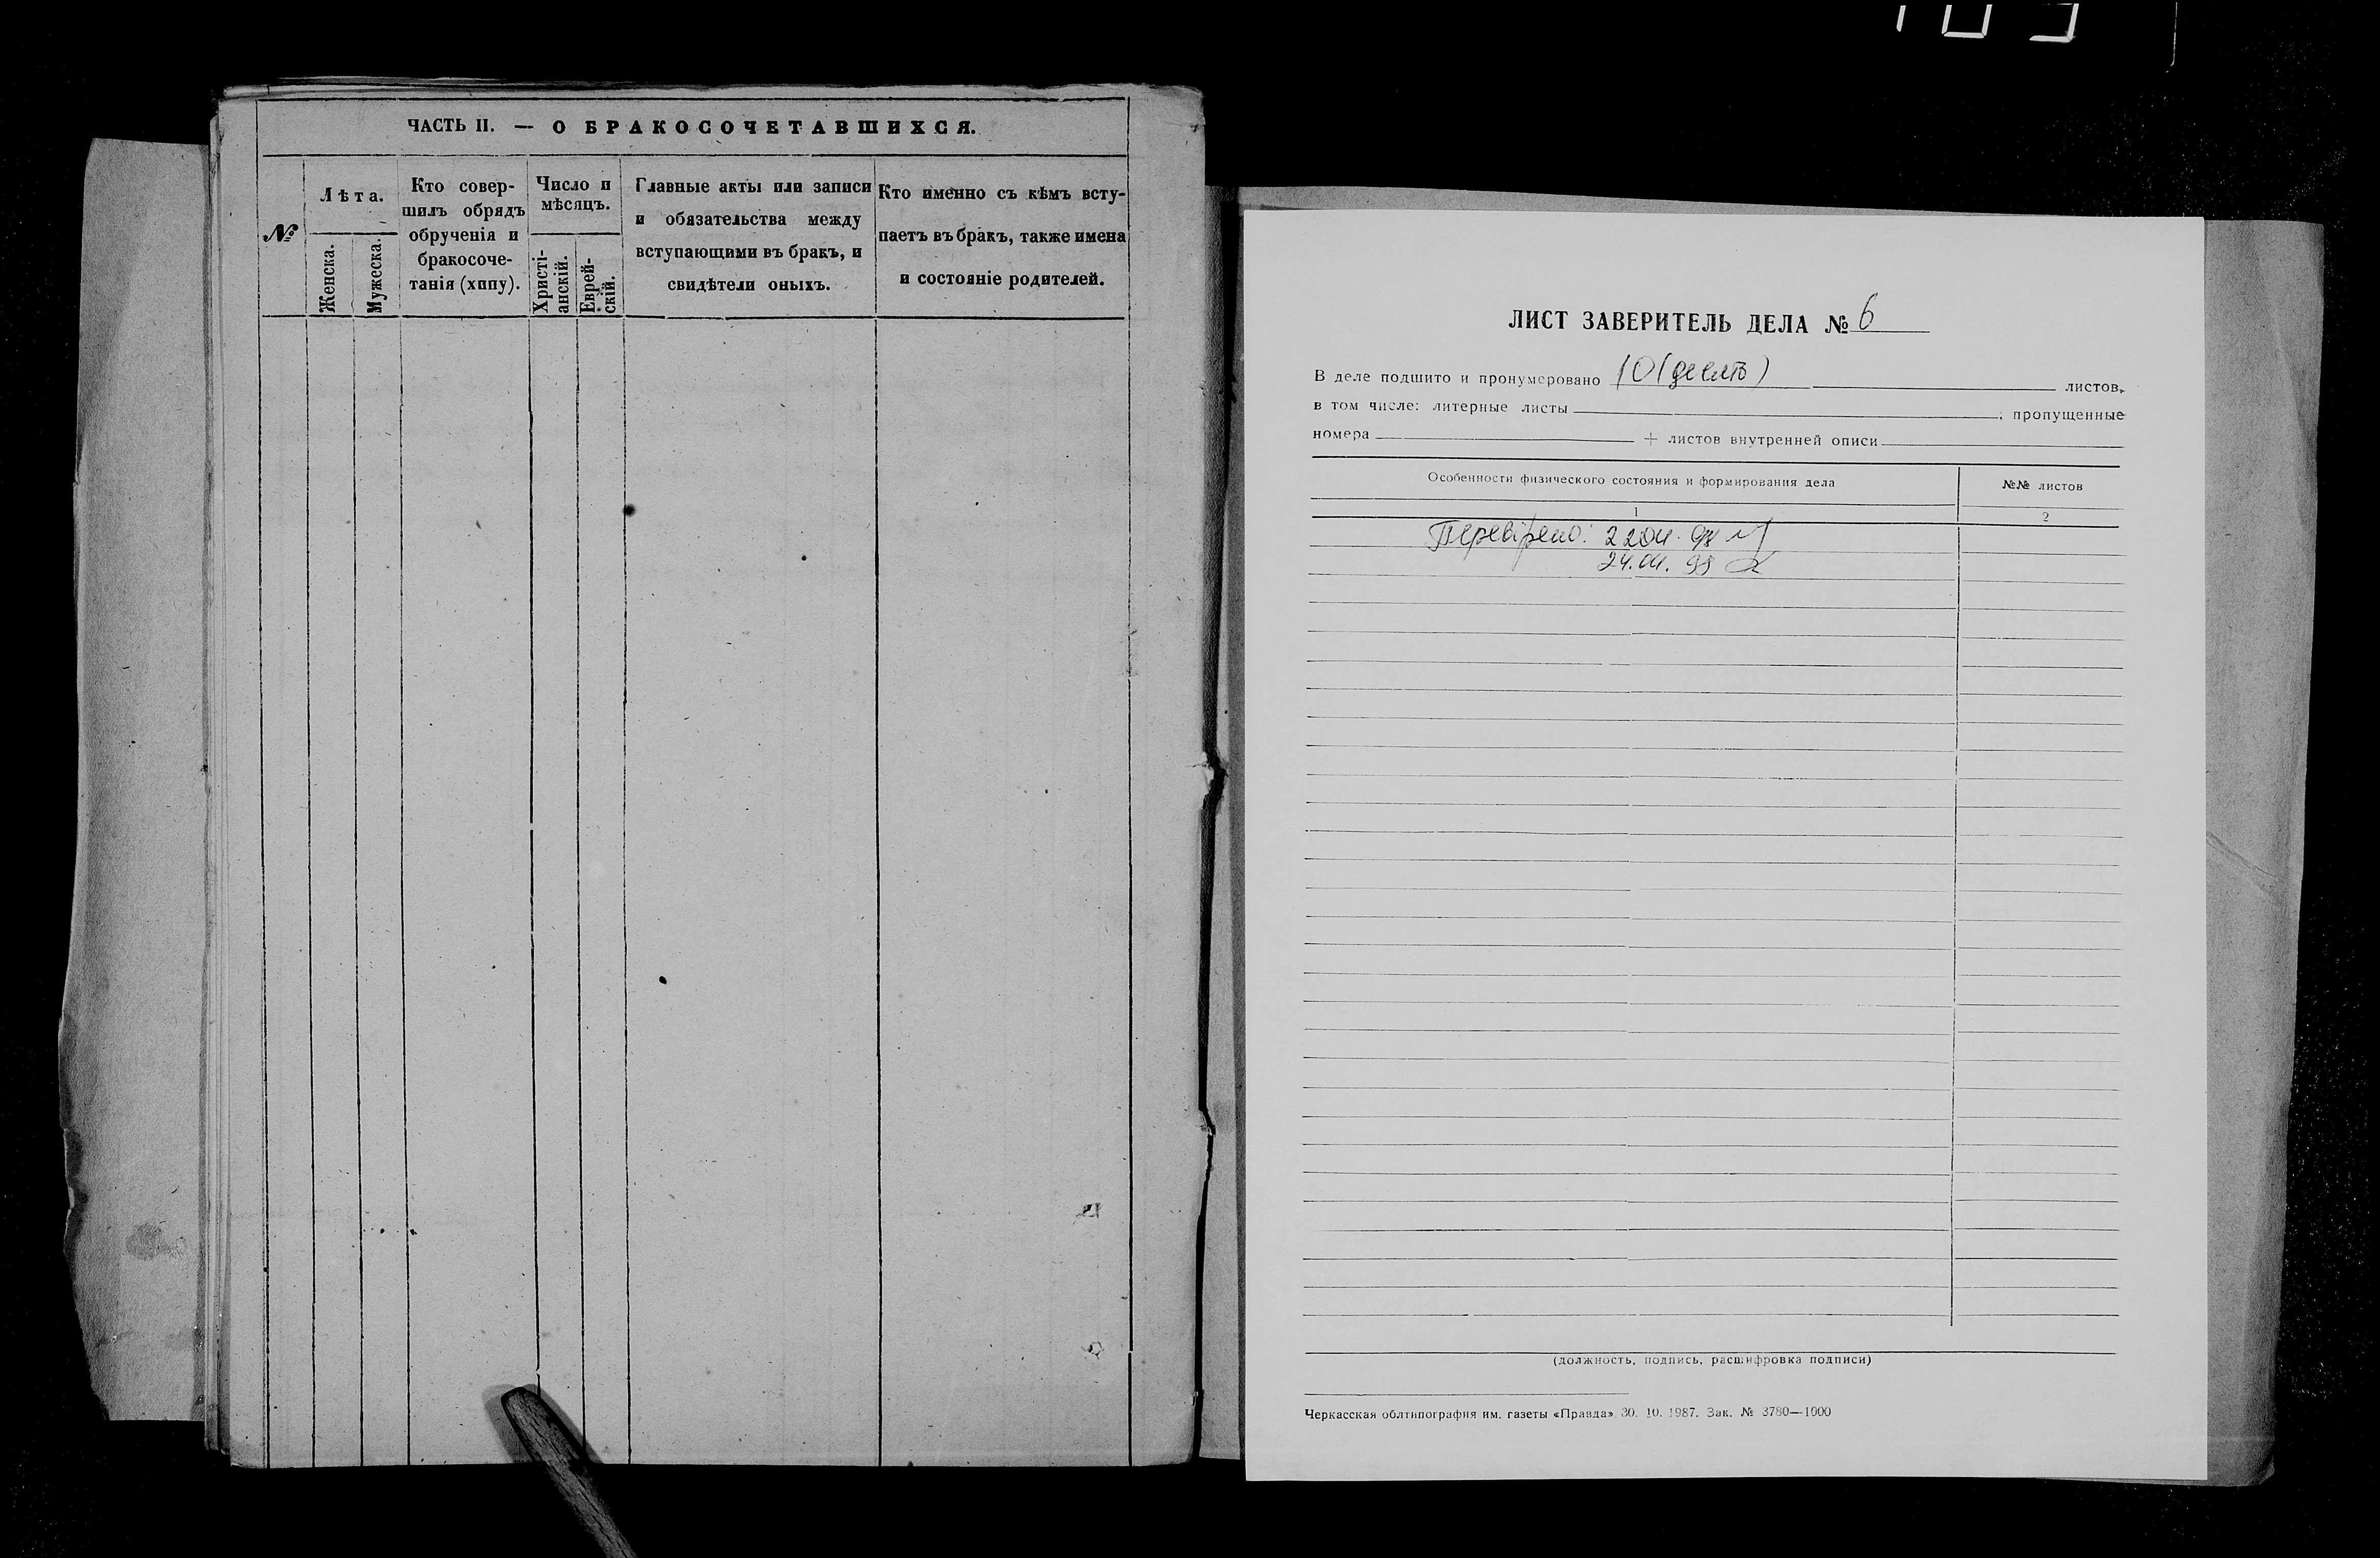 ЧАСТЬ II. — О БРАКОСОЧЕТАВШИХСЯ.
№
Лѣта.
Женска.
Мужеска.
Кто совер-
шилъ обрядъ
обрученія и
бракосоче-
танія (хипу).
Число и
мѣсяцъ.
Христі-
анскій.
Еврей-
скій.
Главные акты или записи
и обязательства между
вступающими въ бракъ, и
свидѣтели оныхъ.
Кто именно съ кѣмъ всту-
паетъ въ бракъ, также имена
и состояніе родителей.
ЛИСТ ЗАВЕРИТЕЛЬ ДЕЛА № 6
В деле подшито и пронумеровано 10 (десять) листов,
в том числе: литерные листы ; пропущенные
номера + листов внутренней описи
Особенности физического состояния и формирования дела
№№ листов
1
2
Перевірено: 22.04.98
24.04.98
(должность, подпись, расшифровка подписи)
Черкасская облтипография им. газеты «Правда» 30. 10. 1987. Зак. № 3780—1000